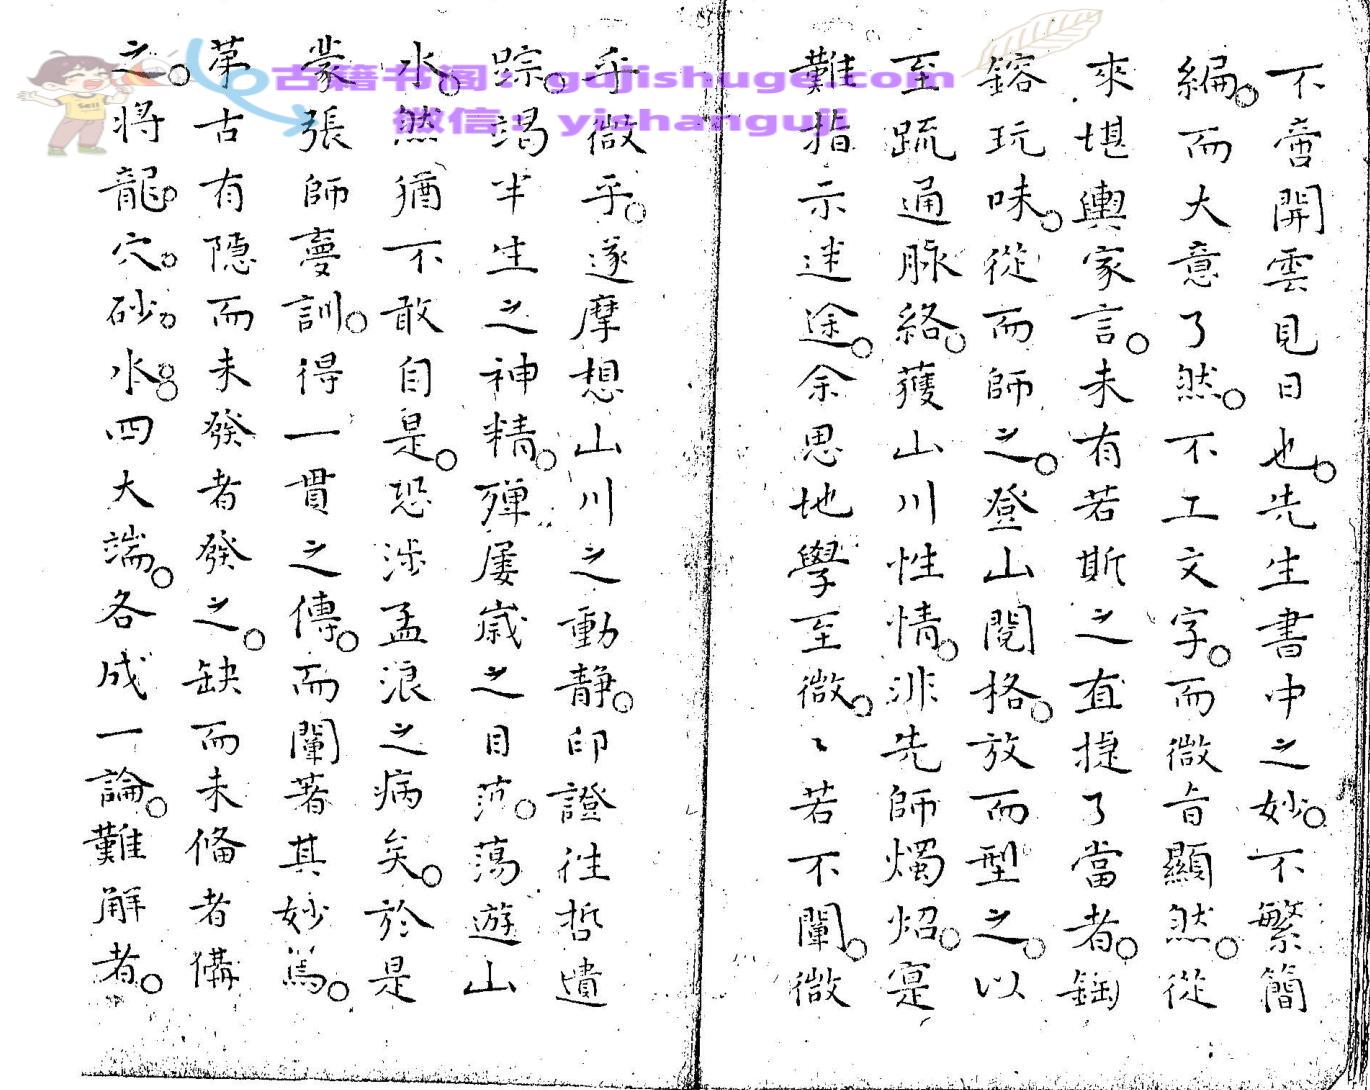 不啻開雲見日也。先生書中之妙。不繁簡
編。而大意了然。不工文字。而微旨顯然。從
來堪輿家言。未有若斯之直捷了當者。錮
鎔玩味。從而師之。登山閱格。放而型之。以
至疏通脉絡。獲山川性情。非先師燭炤。寔
難指示迷途。余思地學至微。〻若不闡。微
乎微乎。遂摩想山川之動靜。印證往哲遺
踪。竭半生之神精。殫屢歲之目茫。蕩遊山
水。然猶不敢自是。恐涉孟浪之病矣。於是
蒙張師夢訓。得一貫之傳。而闡著其妙焉。
第古有隱而未發者發之。缺而未備者備
之。將龍。穴。砂。水。四大端。各成一論。難解者。
古籍书阁：gujishuge.com
微信：yishanguji
Sell